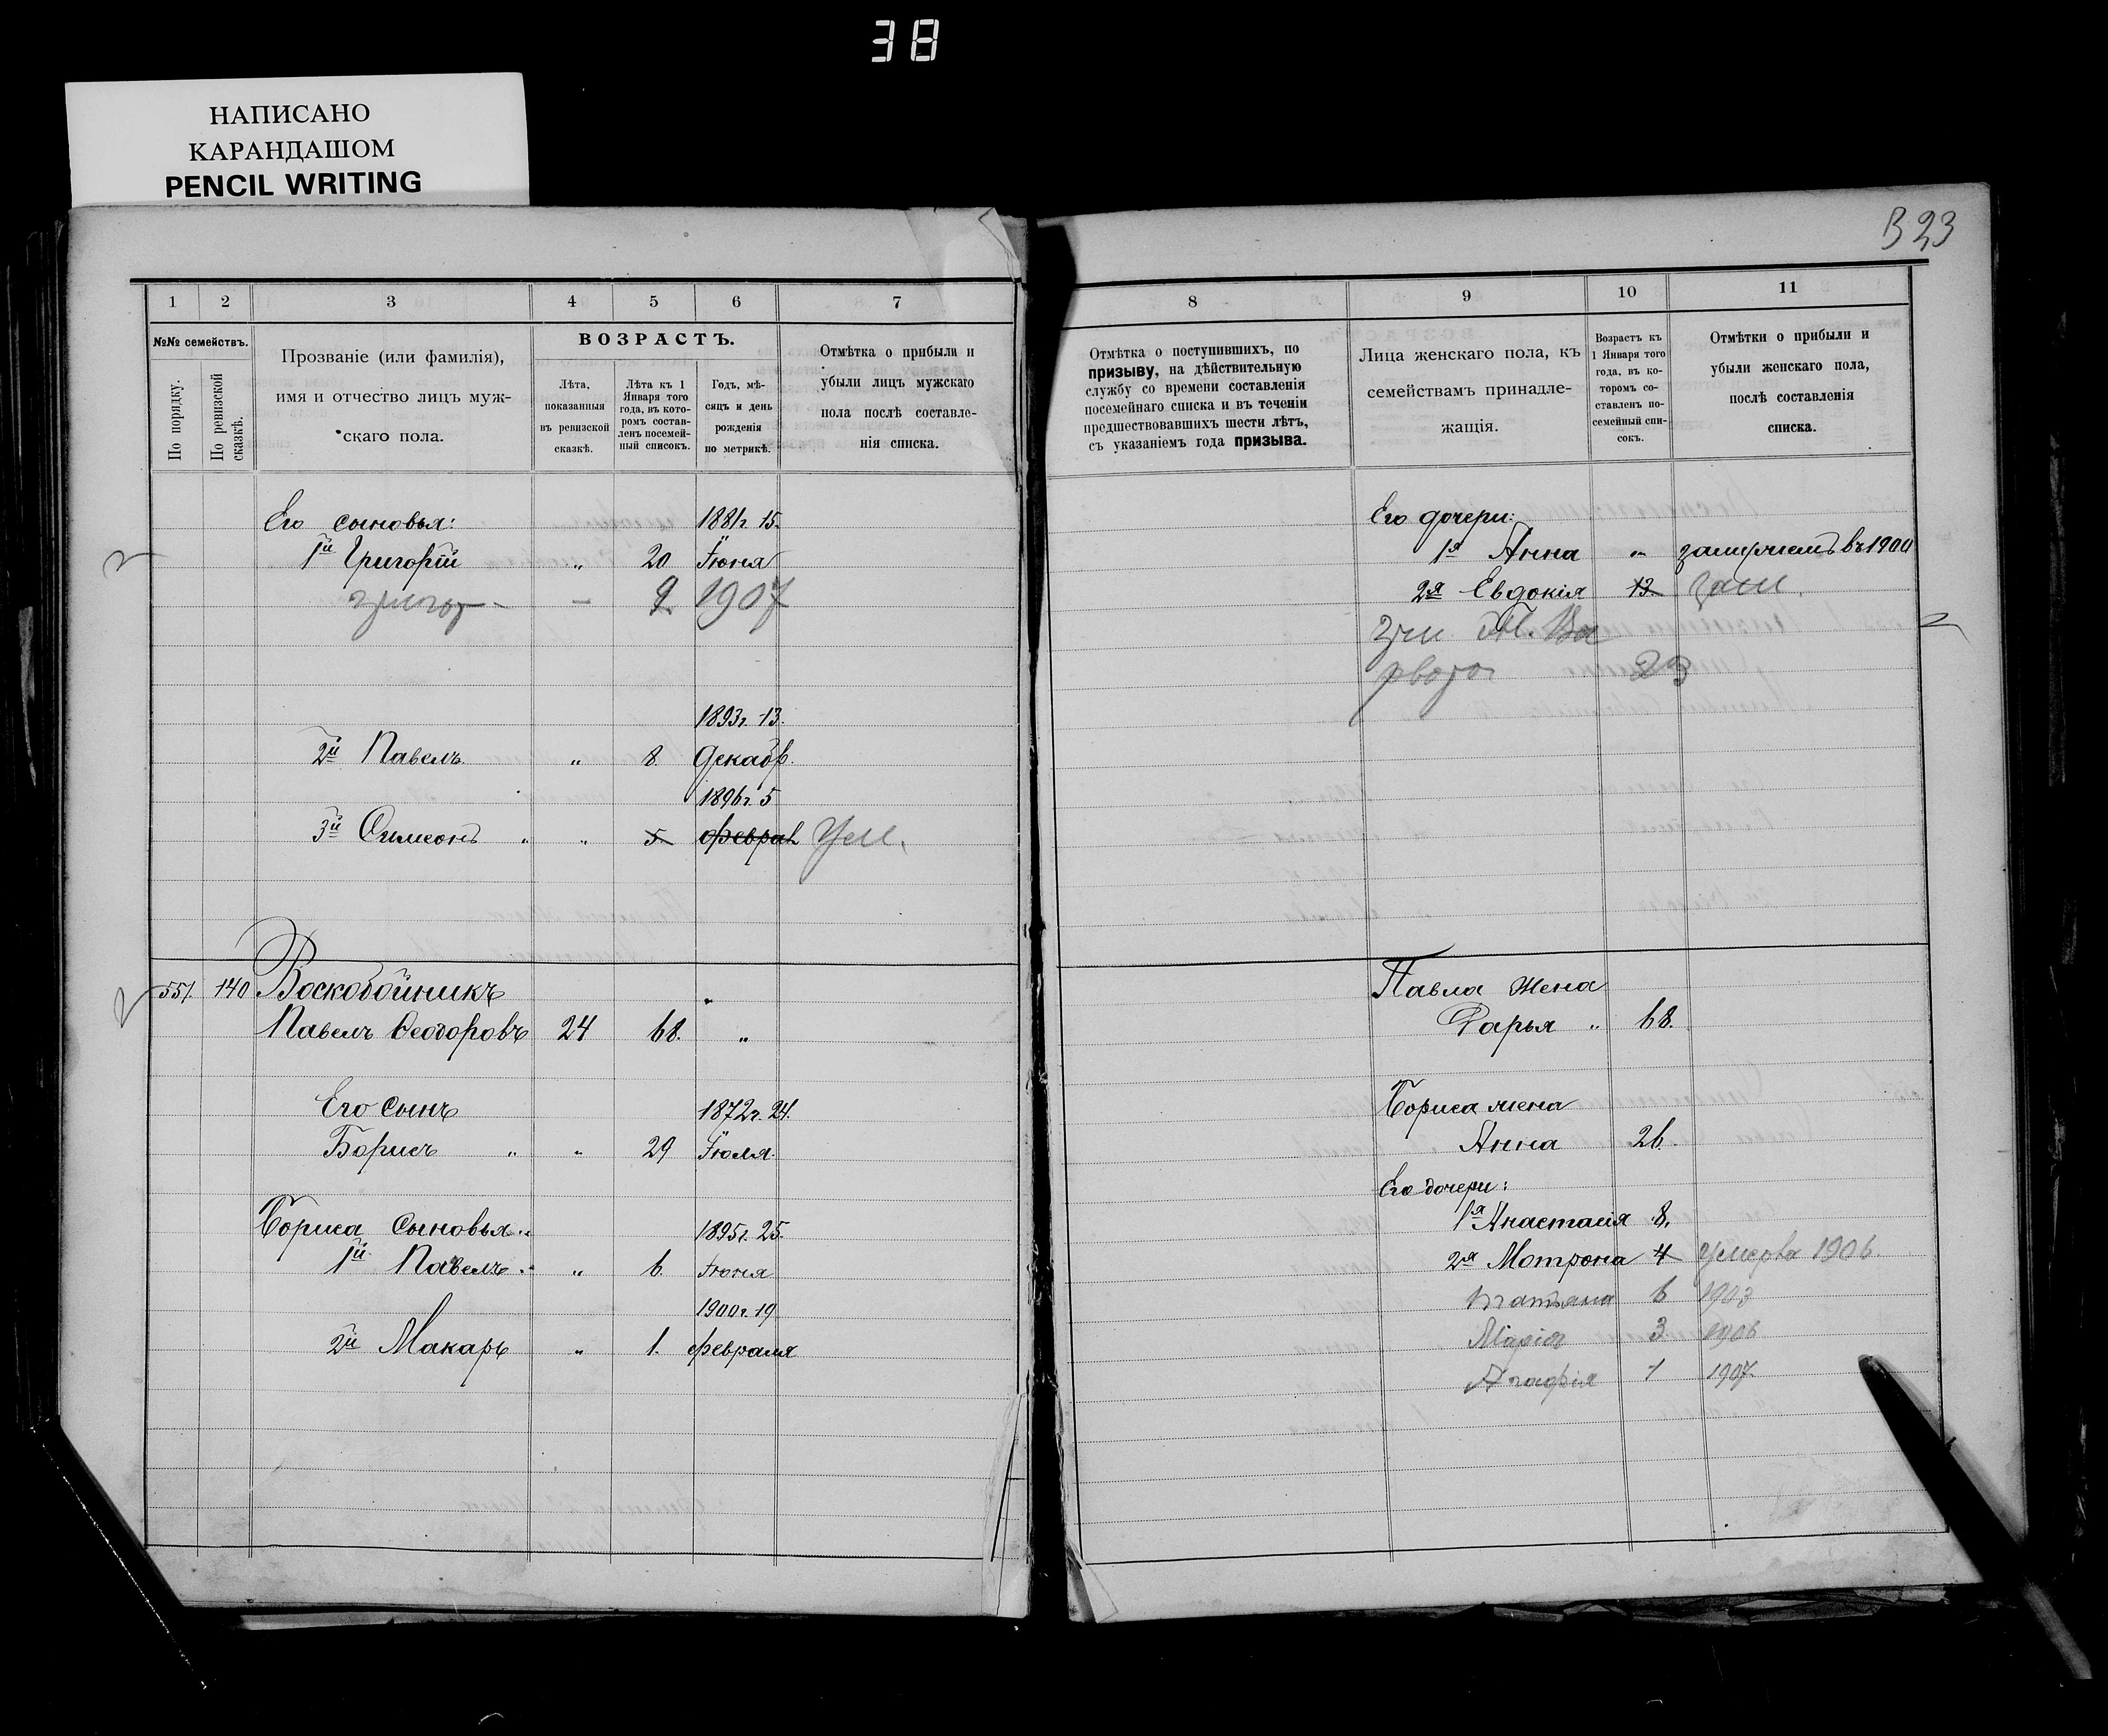 38
НАПИСАНО
КАРАНДАШОМ
PENCIL WRITING
В 23
1 2 3 4 5 6 7
№№ семействъ.
По порядку.
По ревизской сказкѣ.
Прозваніе (или фамилія),
имя и отчество лицъ муж-
скаго пола.
ВОЗРАСТЪ.
Лѣта,
показанныя
въ ревизской
сказкѣ.
Лѣта къ 1
Января того
года, въ кото-
ромъ состав-
ленъ посемей-
ный списокъ.
Годъ, мѣ-
сяцъ и день
рожденія
по метрикѣ.
Отмѣтка о прибыли и
убыли лицъ мужскаго
пола послѣ составле-
нія списка.
Его сыновья: 1881г. 15.
1й Григорій " 20 Іюня
- 2 1907
1893г. 13.
2й Павелъ " 8. Декабр.
1896г. 5
3й Симеонъ " " 5 феврал Ум.
551. 140 Воскобойникъ
Павелъ Ѳеодоровъ 24 68. "
Его сынъ 1872г. 24.
Борисъ " " 29 Іюля.
Бориса сыновья: 1895г. 25.
1й Павелъ " 6. Іюня
1900г. 19
2й Макаръ " 1. февраля
8 9 10 11
Отмѣтка о поступившихъ, по
призыву, на дѣйствительную
службу со времени составленія
посемейнаго списка и въ теченіи
предшествовавшихъ шести лѣтъ,
съ указаніемъ года призыва.
Лица женскаго пола, къ
семействамъ принадле-
жащія.
Возрастъ къ
1 Января того
года, въ ко-
торомъ со-
ставленъ по-
семейный спи-
сокъ.
Отмѣтки о прибыли и
убыли женскаго пола,
послѣ составленія
списка.
Его дочери:
1я Анна " замужемъ въ 1900
2я Евдокія 13 зам.
23
Павла жена
Дарья " 68.
Бориса жена
Анна 26.
Его дочери:
1я Анастасія 8.
2я Мотрона 4 умерла 1906
Татьяна 6 1903
Марія 3 1906
Агафія 1 1907.